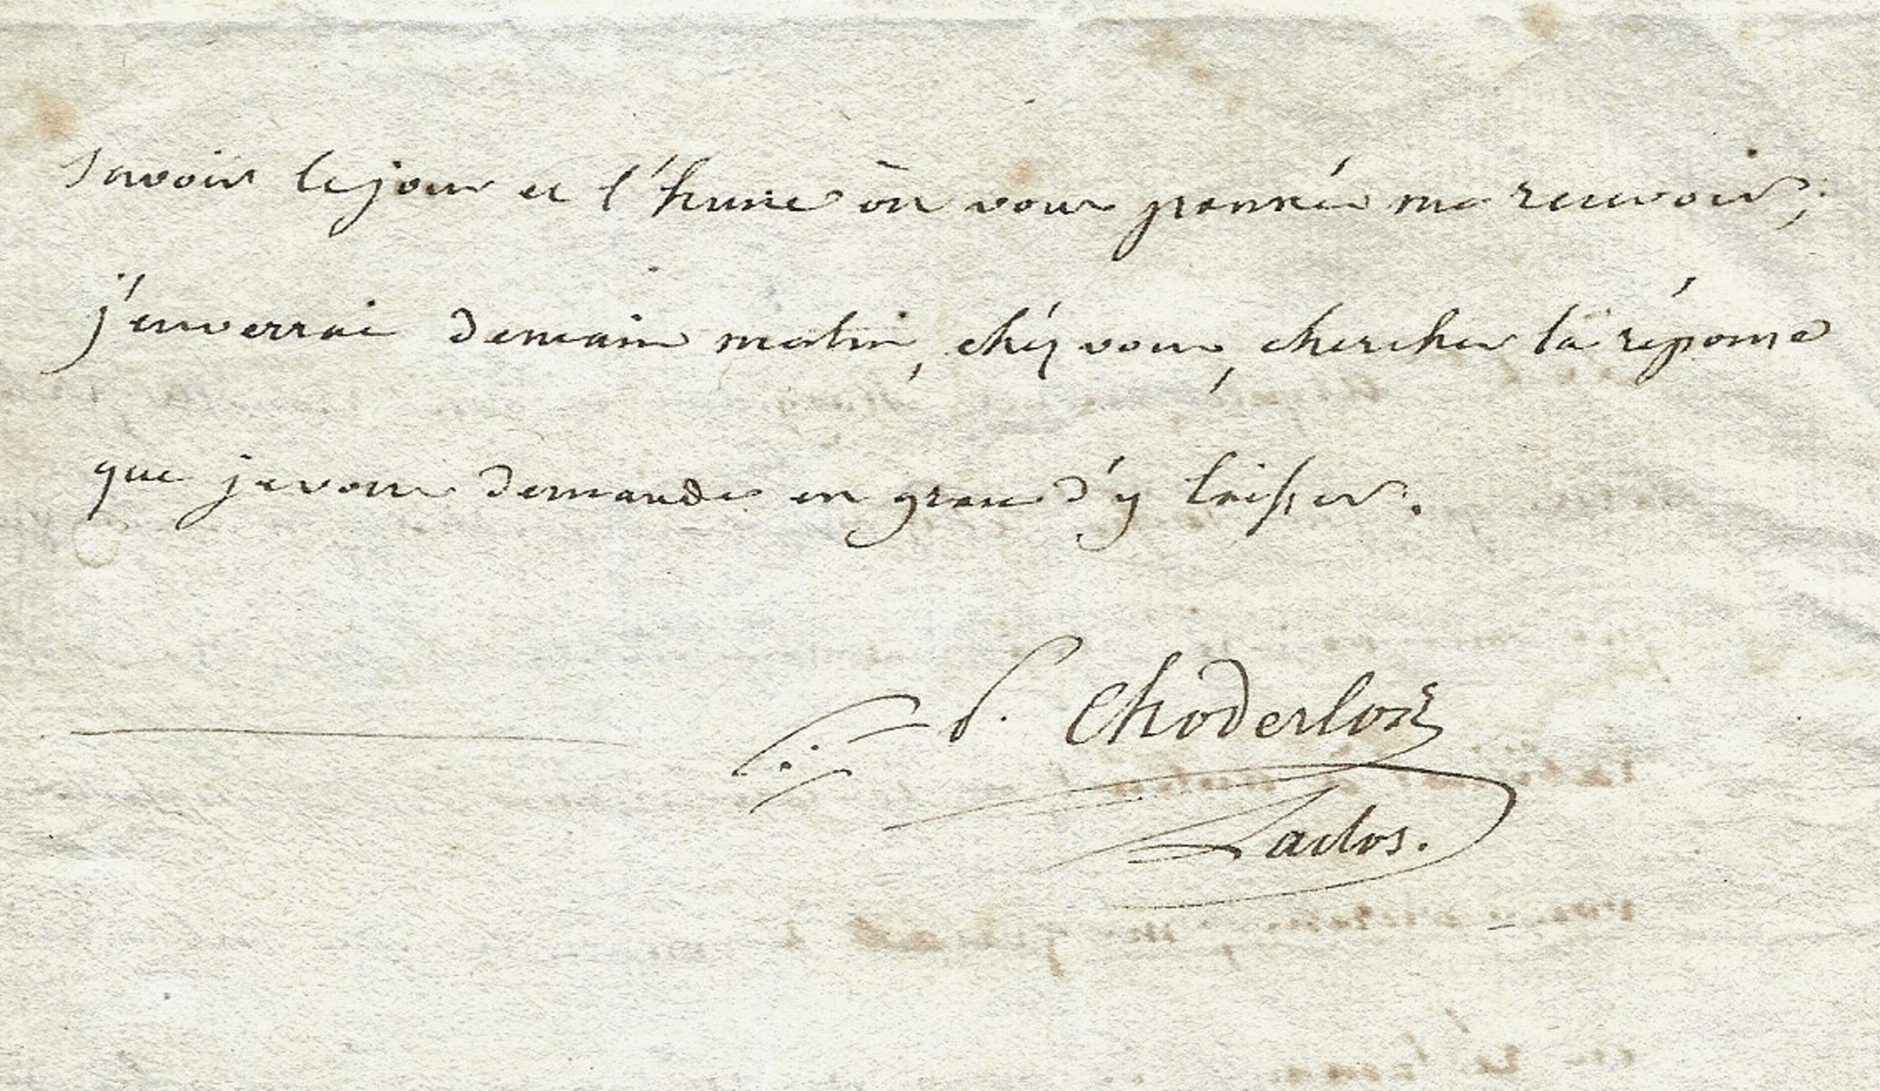 savoir le jour et l'heure où vous pourrés me recevoir;
j'enverrai demain matin, chéz vous, chercher la réponse
que je vous demande en grace d'y laisser.
P. Choderlos
Laclos.